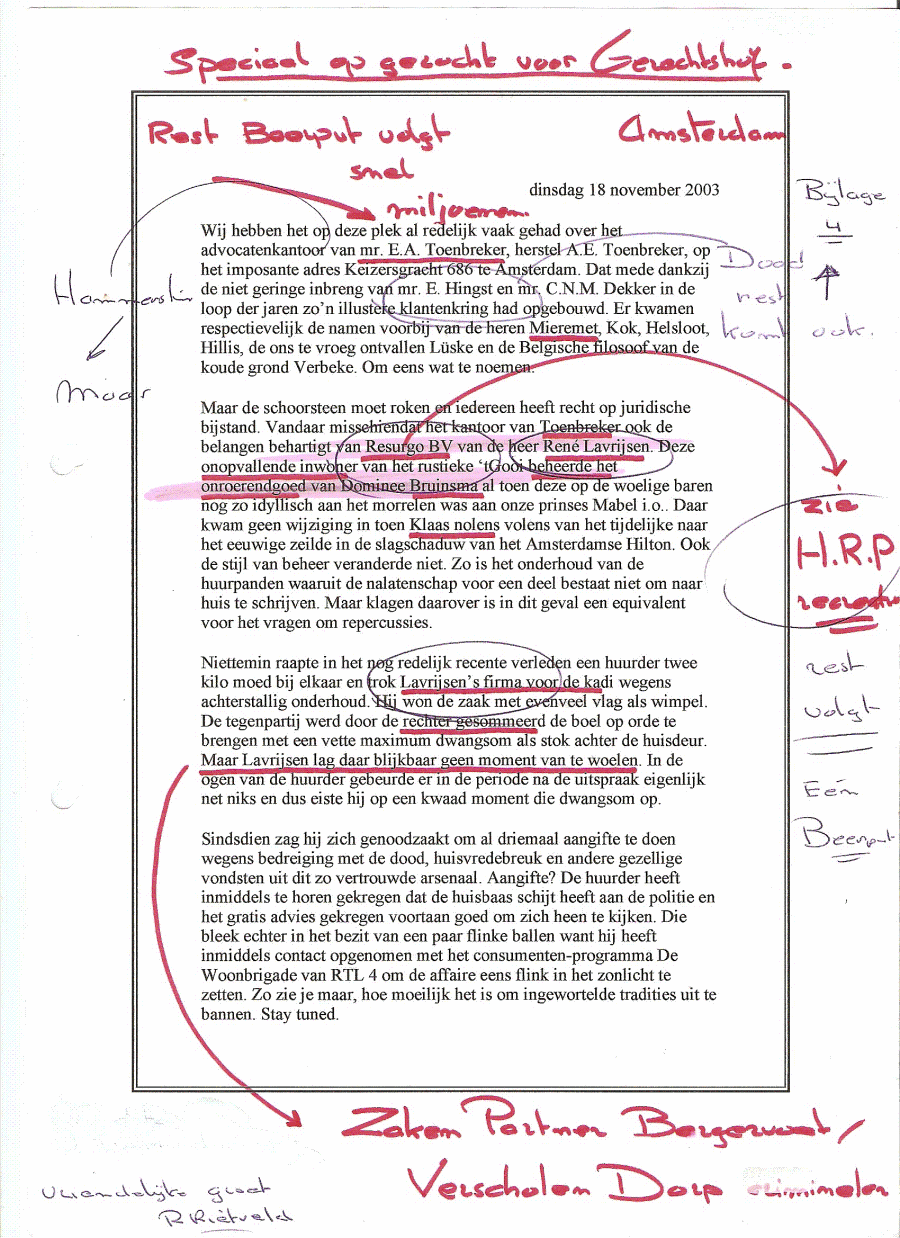 Speciaal op gezocht voor Gerechtshof.
Rest Beerput volgt
snel
Amsterdam
miljoenen.
dinsdag 18 november 2003
Bijlage
4
Wij hebben het op deze plek al redelijk vaak gehad over het
advocatenkantoor van mr. E.A. Toenbreker, herstel A.E. Toenbreker, op
het imposante adres Keizersgracht 686 te Amsterdam. Dat mede dankzij
de niet geringe inbreng van mr. E. Hingst en mr. C.N.M. Dekker in de
loop der jaren zo'n illustere klantenkring had opgebouwd. Er kwamen
respectievelijk de namen voorbij van de heren Mieremet, Kok, Helsloot,
Hillis, de ons te vroeg ontvallen Lüske en de Belgische filosoof van de
koude grond Verbeke. Om eens wat te noemen.
Dood
rest
komt ook.
Maar de schoorsteen moet roken en iedereen heeft recht op juridische
bijstand. Vandaar misschiendat het kantoor van Toenbreker ook de
belangen behartigt van Resurgo BV van de heer René Lavrijsen. Deze
onopvallende inwoner van het rustieke 'tGooi beheerde het
onroerendgoed van Dominee Bruinsma al toen deze op de woelige baren
nog zo idyllisch aan het morrelen was aan onze prinses Mabel i.o.. Daar
kwam geen wijziging in toen Klaas nolens volens van het tijdelijke naar
het eeuwige zeilde in de slagschaduw van het Amsterdamse Hilton. Ook
de stijl van beheer veranderde niet. Zo is het onderhoud van de
huurpanden waaruit de nalatenschap voor een deel bestaat niet om naar
huis te schrijven. Maar klagen daarover is in dit geval een equivalent
voor het vragen om repercussies.
zie
H.R.P
rest
volgt
Eén
Beerput
Niettemin raapte in het nog redelijk recente verleden een huurder twee
kilo moed bij elkaar en trok Lavrijsen's firma voor de kadi wegens
achterstallig onderhoud. Hij won de zaak met evenveel vlag als wimpel.
De tegenpartij werd door de rechter gesommeerd de boel op orde te
brengen met een vette maximum dwangsom als stok achter de huisdeur.
Maar Lavrijsen lag daar blijkbaar geen moment van te woelen. In de
ogen van de huurder gebeurde er in de periode na de uitspraak eigenlijk
net niks en dus eiste hij op een kwaad moment die dwangsom op.
Sindsdien zag hij zich genoodzaakt om al driemaal aangifte te doen
wegens bedreiging met de dood, huisvredebreuk en andere gezellige
vondsten uit dit zo vertrouwde arsenaal. Aangifte? De huurder heeft
inmiddels te horen gekregen dat de huisbaas schijt heeft aan de politie en
het gratis advies gekregen voortaan goed om zich heen te kijken. Die
bleek echter in het bezit van een paar flinke ballen want hij heeft
inmiddels contact opgenomen met het consumenten-programma De
Woonbrigade van RTL 4 om de affaire eens flink in het zonlicht te
zetten. Zo zie je maar, hoe moeilijk het is om ingewortelde tradities uit te
bannen. Stay tuned.
Zaken Partner
Verscholen Dorp criminelen
Vriendelijke groet
R Rietveld